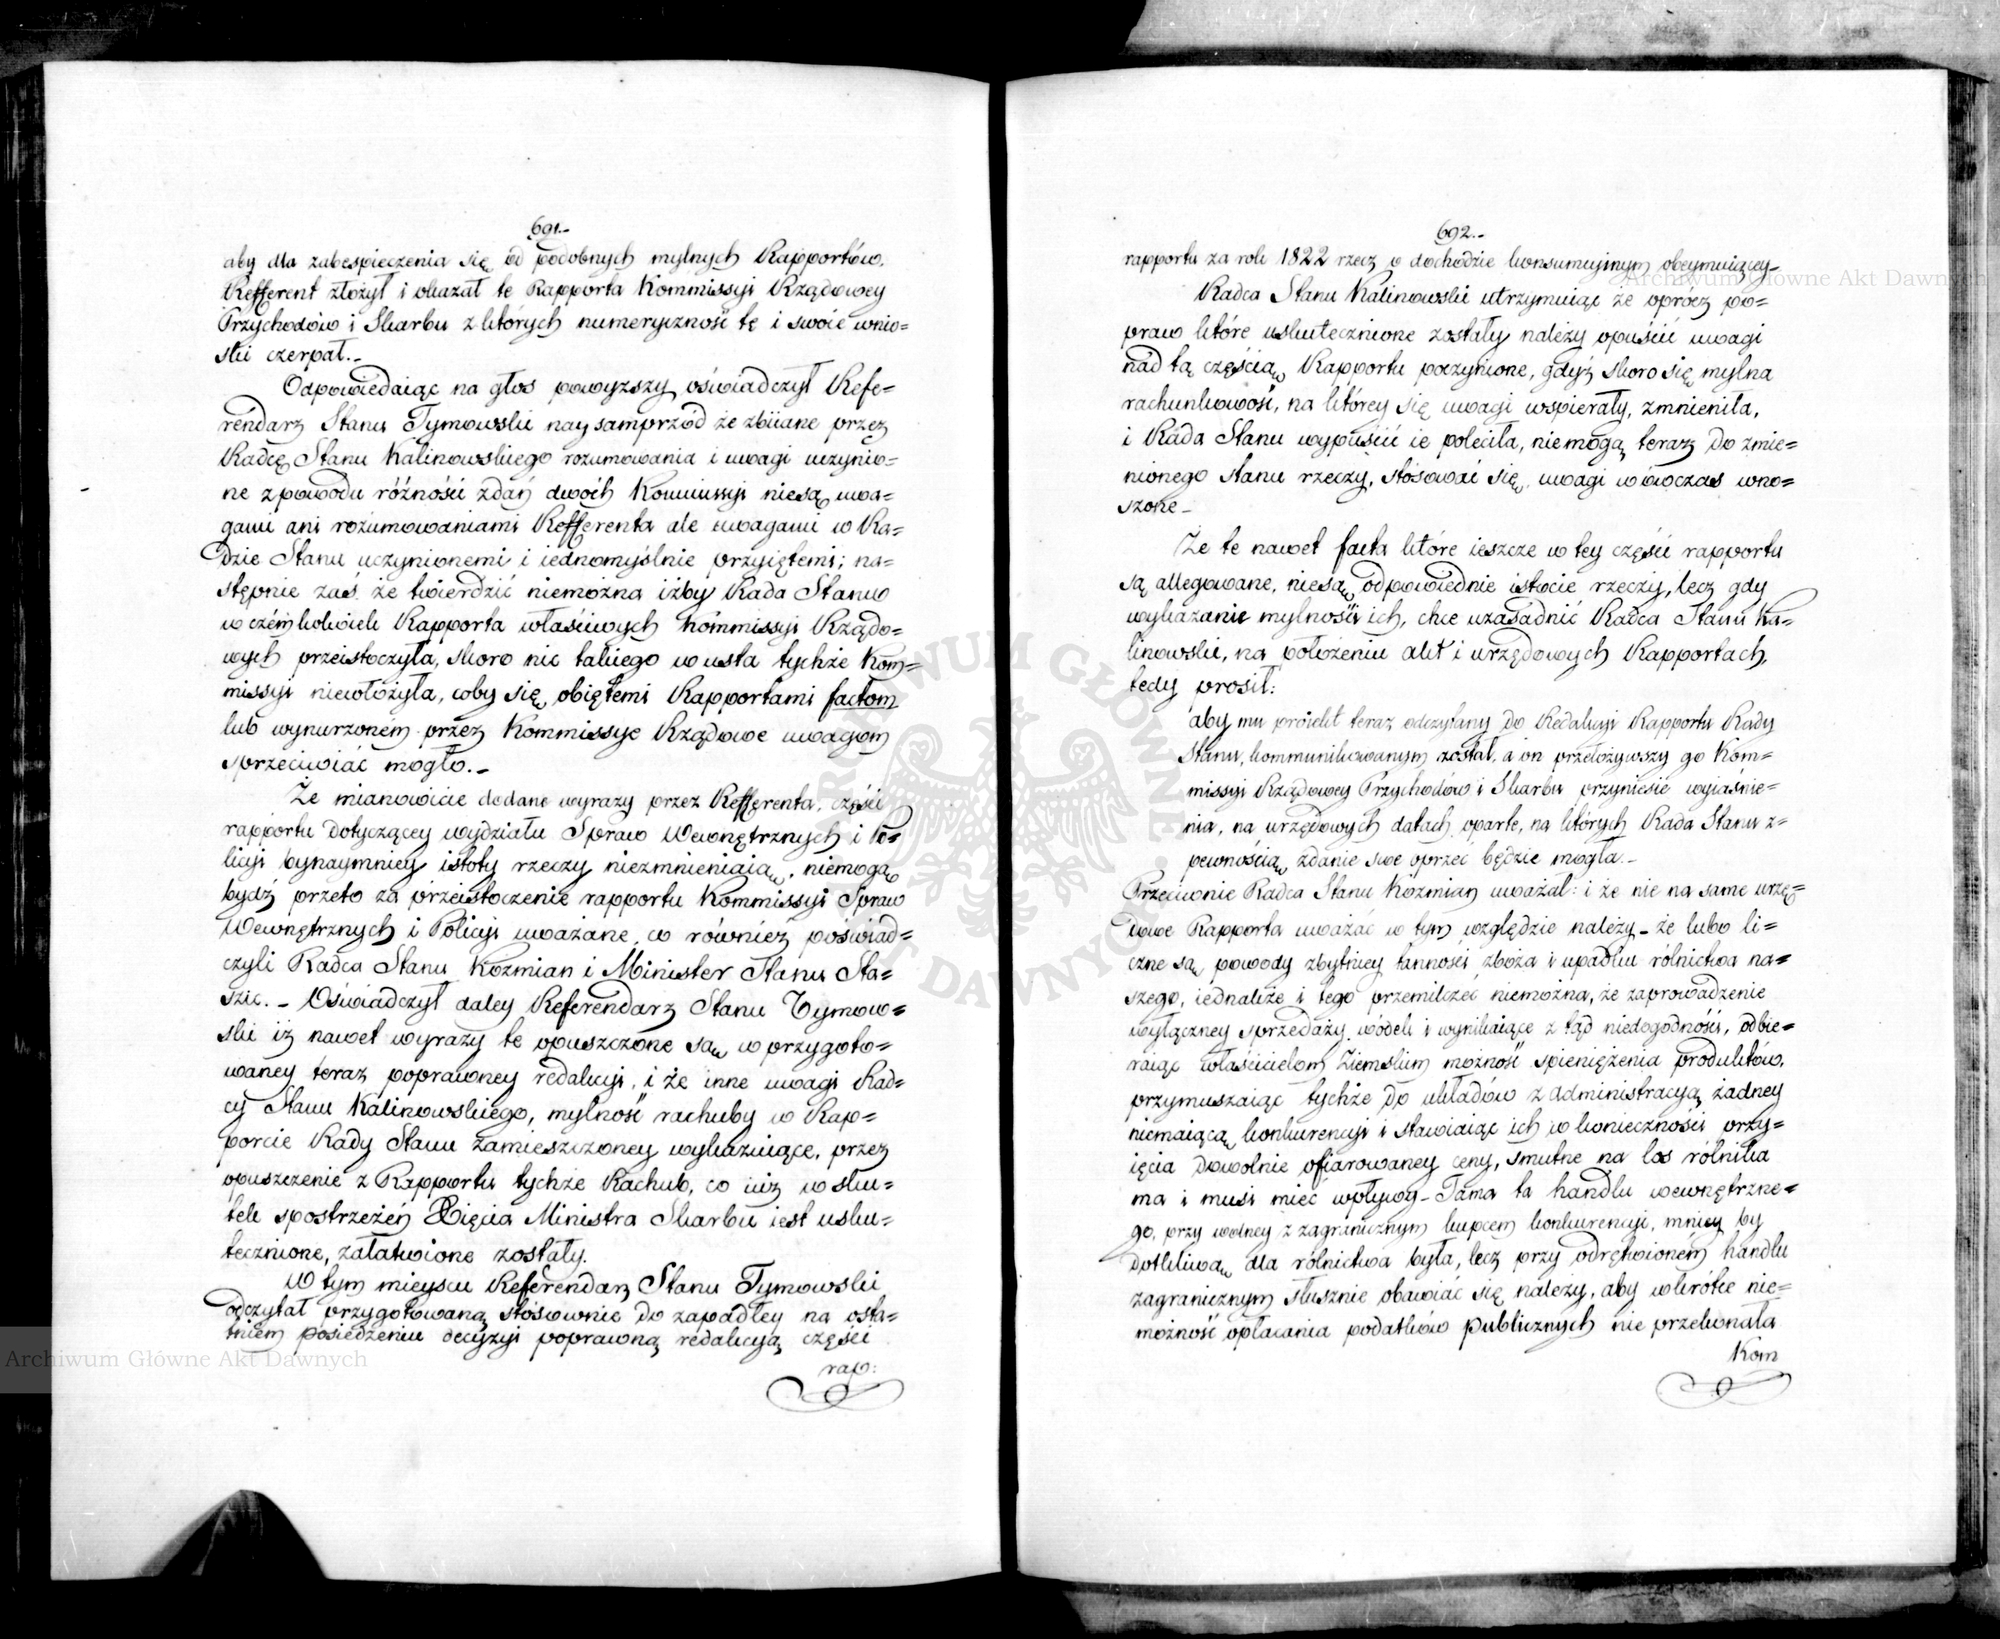 691.-
aby dla zabespieczenia się od podobnych mylnych Rapportów,
Refferent złożył i okazał te Rapporta Kommissyi Rządowey
Przychodów i Skarbu z których numeryczność tę i swóie wnio=
ski czerpał.-
Odpowiedaiąc na głos powyższy oświadczył Refe=
rendarz Stanu Tymowski nay samprzód że zbiiane przez
Radcę Stanu Kalinowskiego rozumowania i uwagi uczynio=
ne z powodu różności zdań dwóch Kommissyi niesą uwa=
gami ani rozumowaniami Refferenta ale uwagami w Ra=
dzie Stanu uczynionemi i iednomyślnie przyiętemi; na=
stępnie zaś że twierdzić niemożna iżby Rada Stanu
w czémkolwiek Rapporta właściwych Kommissyi Rządo=
wych przeistoczyła, skoro nic takiego w usta tychże Kom=
missyi niewłożyła, coby się obiętemi Rapportami factom
lub wynurzoném przez Kommissye Rządowe uwagom
sprzeciwiać mogło.-
Że mianowicie dodane wyrazy przez Refferenta, części
rapportu dotyczącey wydziału Spraw Wewnętrznych i Po=
licyi bynaymniey istoty rzeczy niezmnieniaią, niemogą
bydź przeto za przeistoczenie rapportu Kommissyi Spraw
Wewnętrznych i Policyi uważane, co również poświad=
czyli Radca Stanu Koźmian i Minister Stanu Sta=
szic. - Oświadczył daley Referendarz Stanu Tymow=
ski iż nawet wyrazy te opuszczone są w przygoto=
waney teraz poprawney redakcyi, i że inne uwagi Rad=
cy Stanu Kalinowskiego, mylność rachuby w Rap=
porcie Rady Stanu zamieszczoney wykazuiące, przez
opuszczenie z Rapportu tychże Rachub, co iuż w sku=
tek spostrzeżeń Xięcia Ministra Skarbu iest usku=
tecznione, załatwione zostały.
W tym mieyscu Referendarz Stanu Tymowski
odczytał przygotowaną stósownie do zapadłey na osta=
tniem posiedzeniu decyzyi poprawną redakcyą części
rap:
692.-
rapportu za rok 1822 rzecz o dochodzie konsumcyinym obeymuiącey-
Radca Stanu Kalinowski utrzymuiąc że oprócz po=
praw które uskutecznione zostały należy opuścić uwagi
nad tą częścią Rapportu poczynione, gdyż skoro się mylna
rachunkowość, na którey się uwagi wspierały, zmnieniła,
i Rada Stanu wypuścić ie poleciła, niemogą teraz do zmie=
nionego stanu rzeczy, stósować się, uwagi wówczas wno=
szone-
Że te nawet facta które ieszcze w tey części rapportu
są allegowane, niesą odpowiednie istocie rzeczy, lecz gdy
wykazanie mylności ich, chce uzasadnić Radca Stanu Ka=
linowski, na położeniu akt i urzędowych Rapportach,
tedy prosił:
aby mu proiekt teraz odczytany do Redakcyi Rapportu Rady
Stanu, kommunikowanym został, a on przełożywszy go Kom=
missyi Rządowey Przychodów i Skarbu przyniesie wyiaśnie=
nia, na urzędowych datach oparte, na których Rada Stanu z=
pewnością zdanie swe oprzeć będzie mogła.-
Przeciwnie Radca Stanu Koźmian uważał: i że nie na same urzę=
dowe Rapporta uważać w tym względzie należy- że lubo li=
czne są powody zbytniey tanności zboża i upadku rólnictwa na=
szego, iednakże i tego przemilczeć niemożna, że zaprowadzenie
wyłączney sprzedaży wódek i wynikaiące z tąd niedogodności, odbie=
raiąc właścicielom Ziemskim możność spieniężenia produktów,
przymuszaiąc tychże do układów z Administracyą żadney
niemaiącą konkurencyi i stawiaiąc ich w konieczności przy=
ięcia dowolnie ofiarowaney ceny, smutne na los rólnika
ma i musi mieć wpływy- Tama ta handlu wewnętrzne=
go, przy wolney z zagranicznym kupcem konkurencyi, mniey by
dotkliwą dla rólnictwa była, lecz przy odrętwioném handlu
zagranicznym słusznie obawiać się należy, aby wkrótce nie=
możność opłacania podatków publicznych nie przekonała
Kom
ARCHIWUM GŁÓWNE AKT DAWNYCH
Archiwum Główne Akt Dawnych
Archiwum Główne Akt Dawnych